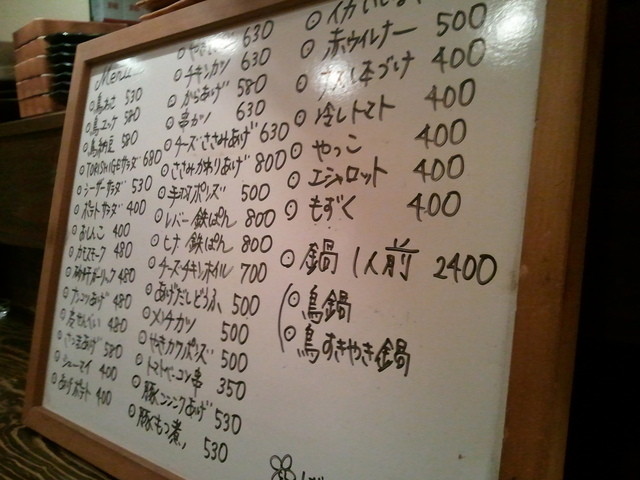 Menu
○鳥わさ 530
○鳥ユッケ 580
○鳥納豆 580
○TORISHIGEサラダ 680
○シーザーサラダ 530
○ポテトサラダ 400
○おしんこ 400
○カモスモーク 480
○砂肝ガーリック 480
○ナンコツあげ 480
○皮せんべい 480
○さつま揚げ 580
○シューマイ 400
○あげポテト 400
○ 630
○チキンカツ 630
○からあげ 580
○串カツ 630
○チーズささみあげ 630
○ささみかわりあげ 800
○ポンズ 500
○レバー鉄ぱん 800
○ヒナ鉄ぱん 800
○チーズチキンホイル 700
○あげだしどうふ 500
○メンチカツ 500
○やきカワポンズ 500
○トマトベーコン串 350
○豚ニンニクあげ 530
○豚もつ煮 530
○イカ
○赤ウィンナー 500
○ 400
○冷しトマト 400
○やっこ 400
○エシャロット 400
○もずく 400
○鍋 1人前 2400
○鳥鍋
○鳥すきやき鍋